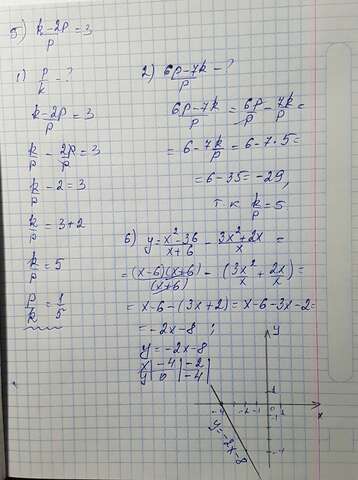 5) (k-2p)/p = 3
1) p/k - ?
(k-2p)/p = 3
k/p - 2p/p = 3
k/p - 2 = 3
k/p = 3+2
k/p = 5
p/k = 1/5
2) (6p-7k)/p - ?
(6p-7k)/p = 6p/p - 7k/p =
= 6 - 7k/p = 6-7·5=
=6-35=-29,
т к k/p = 5
6) y = (x²-36)/(x+6) - (3x²+2x)/x =
= (x-6)(x+6)/(x+6) - (3x²/x + 2x/x) =
= x-6-(3x+2)=x-6-3x-2=
= -2x-8 ;
y = -2x-8
x | -4 | -2 |
y | 0 | -4 |
y
-4 -2 -1 0 1 x
y=-2x-8